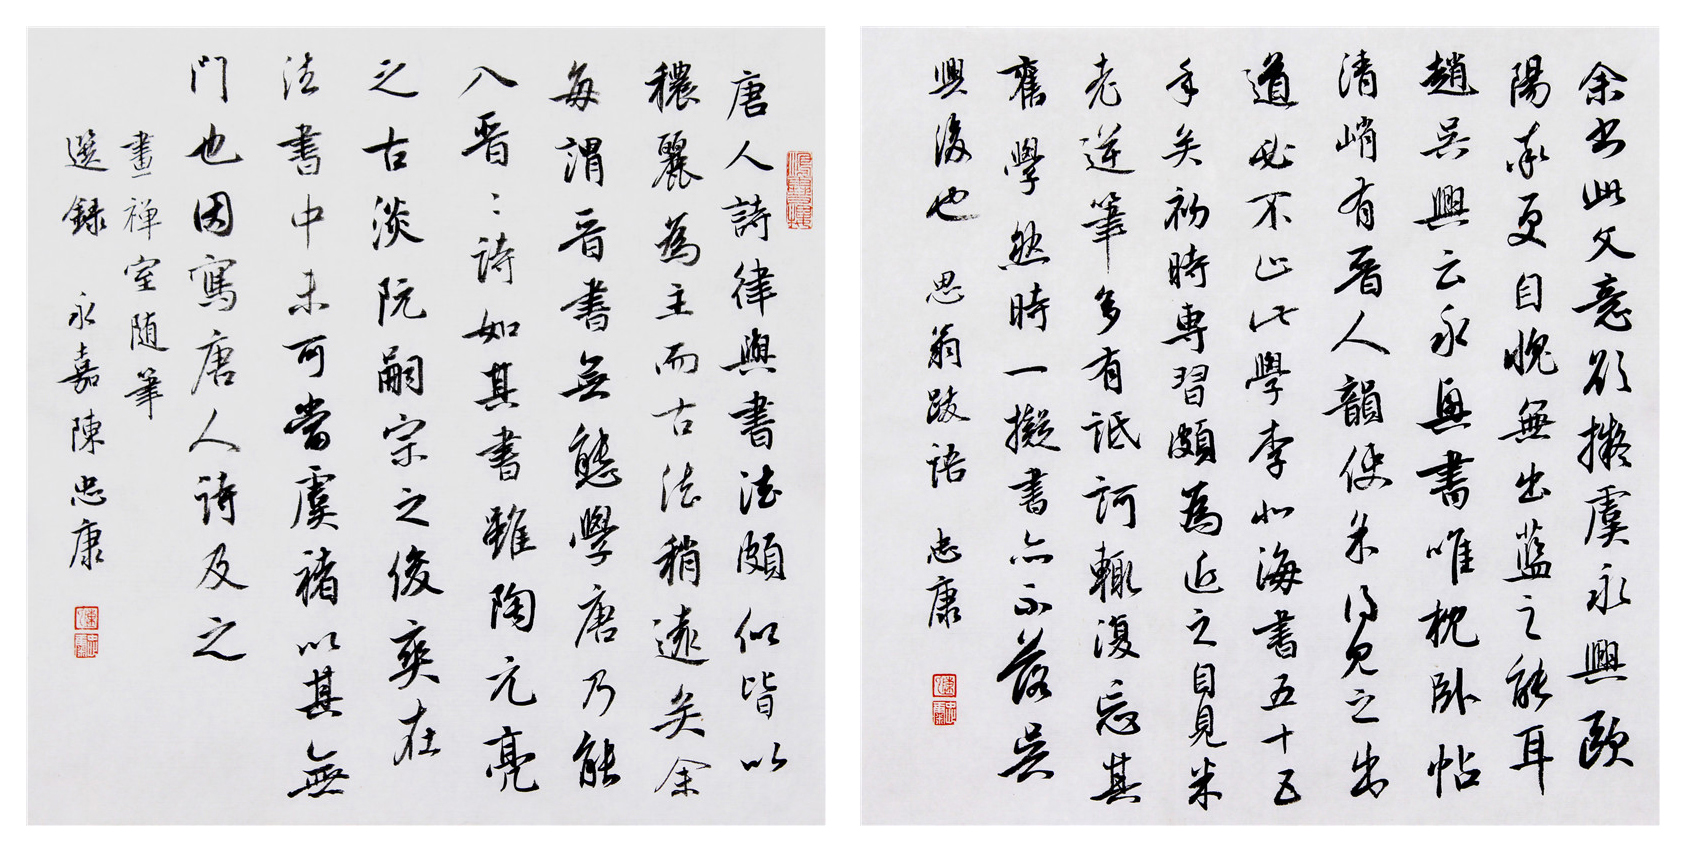 余書此文意欲擬虞永興歐
陽率更自愧無出藍之能耳
趙吳興云永興書唯枕卧帖
清峭有晉人韻使米得見之出
道必不止此學李北海書五十五
手矣初時專習頗為近之自見米
老逆筆多有詆訶輒復忘其
舊學然時一擬書亦不落吳
興後也 思翁跋語 忠康
唐人詩律與書法頗似皆以
穠麗為主而古法稍遠矣余
每謂晉書無態學唐乃能
入晉:詩如其書雖陶元亮
之古淡阮嗣宗之俊爽在
法書中未可當虞褚以其無
門也因寫唐人詩及之
畫禅室随筆
選録 永嘉陳忠康